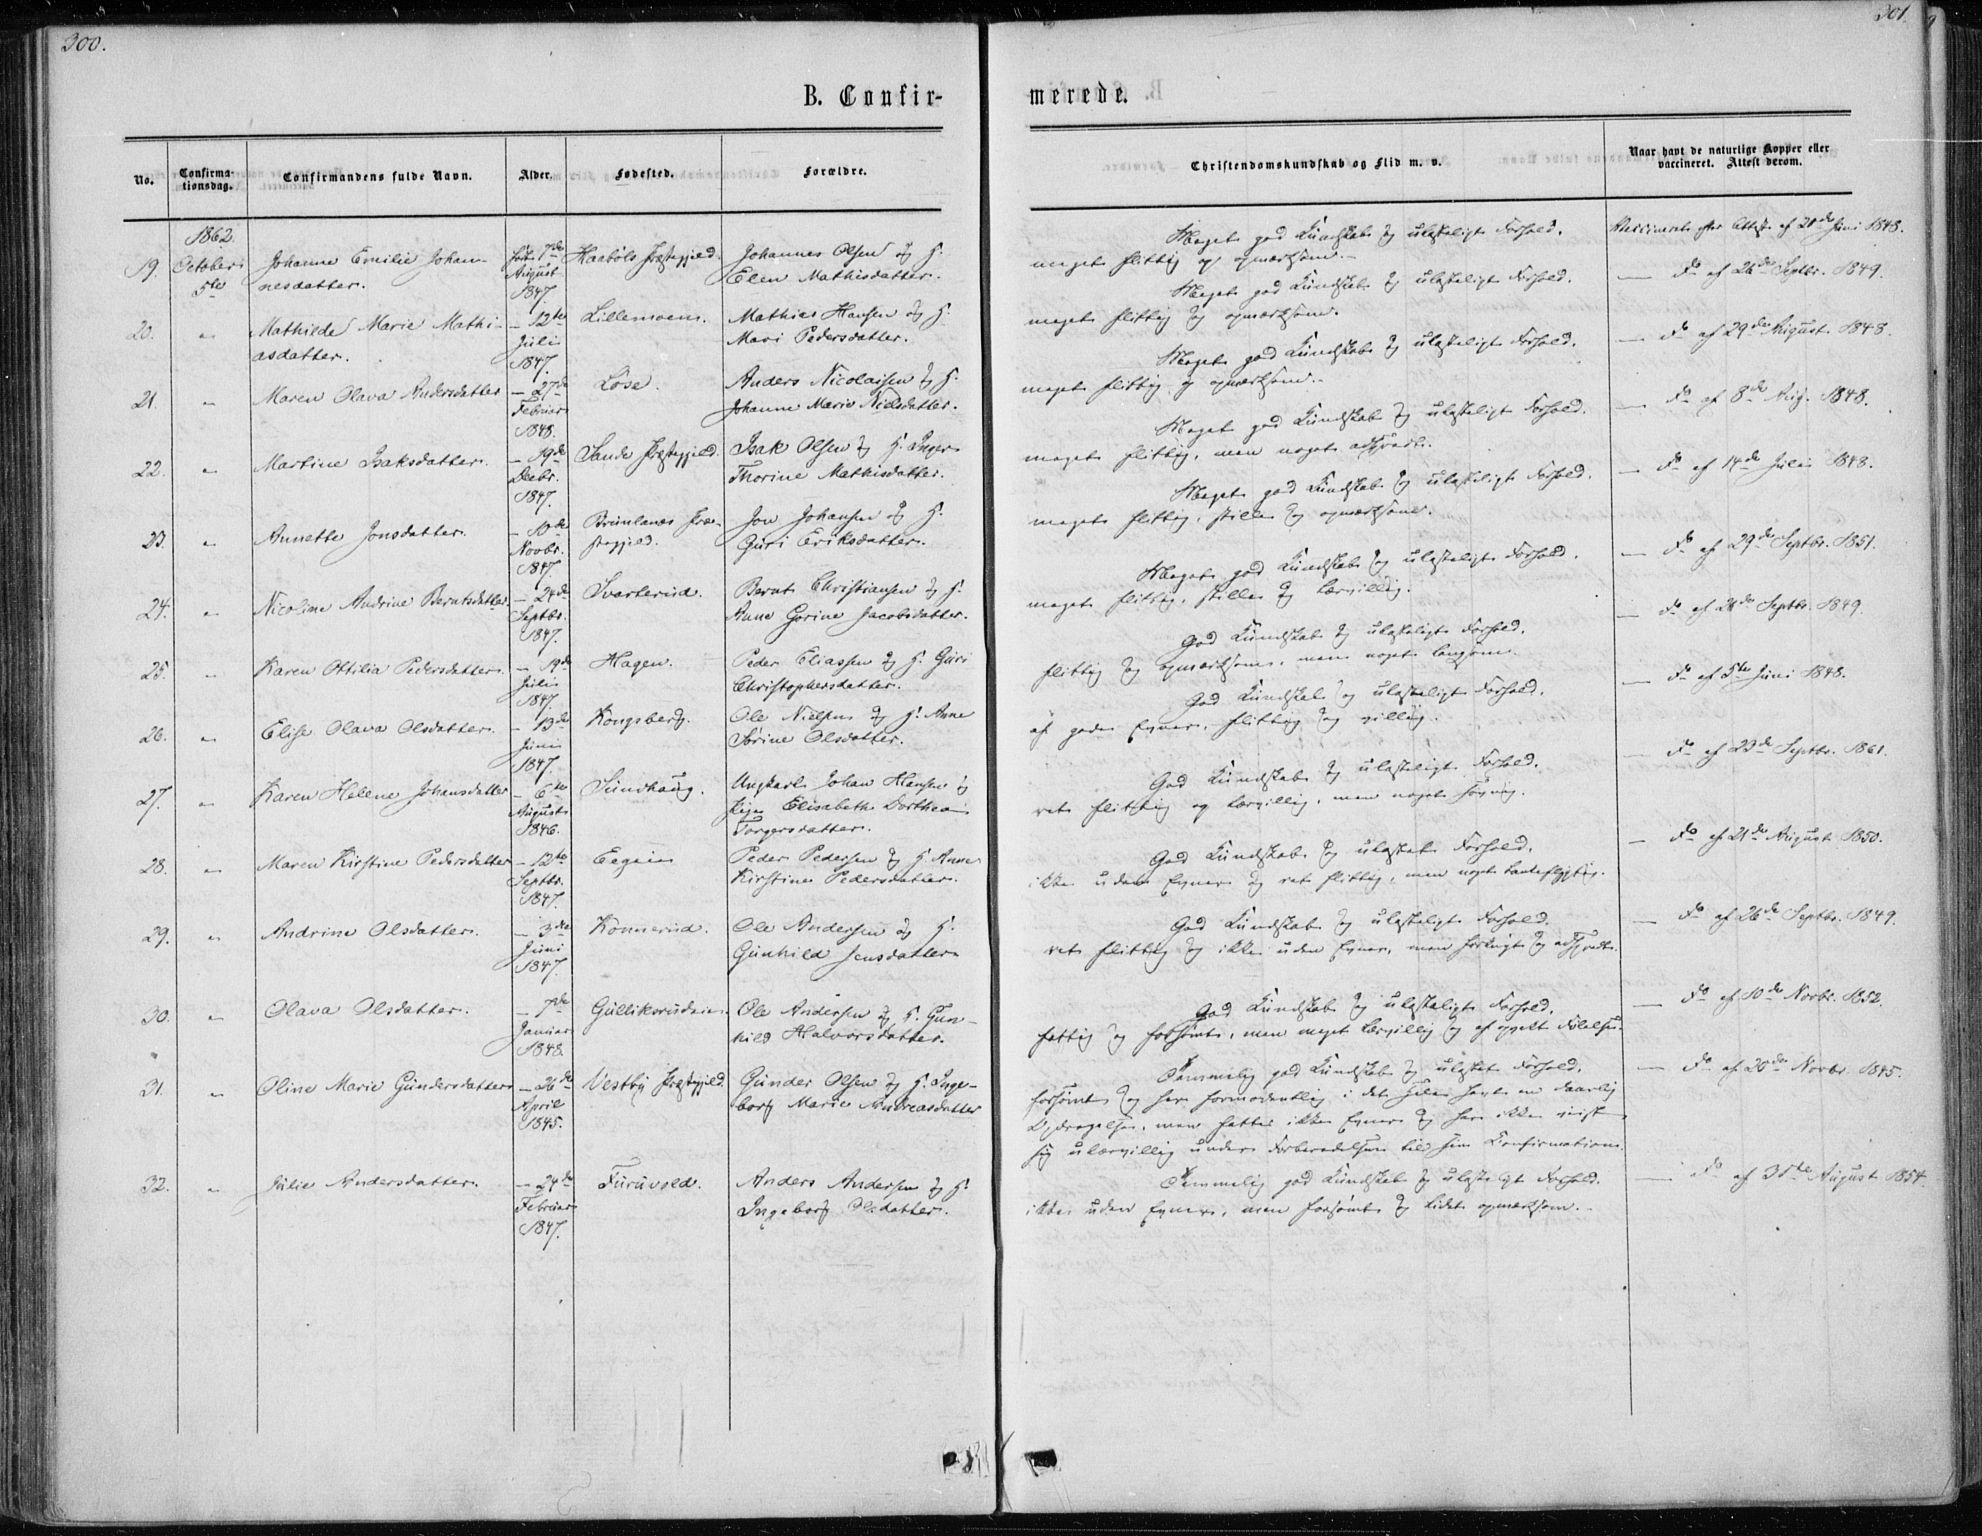 300.
301.
B. Confir-
merede.
No.
Confirma-
tionsdag.
Confirmandens fulde Navn.
Alder.
Fødested.
Forældre.
Christendomskundskab og Flid m. v.
Naar havt de naturlige Kopper eller
vaccineret. Attest derom.
1862.
19. October Johanne Emilie Johan- født 7de Haabøls Præstegjeld. Johannes Olsen og H. Meget god Kundskab og ulasteligt Forhold. Vaccineret efter Attest af 20de Juni 1848.
5te nesdatter. August Elen Mathisdatter. meget flittig og opmærksom.
1847.
20. " Mathilde Marie Mathi- — 12te Lillemoen. Mathias Hansen og H. Meget god Kundskab og ulasteligt Forhold. — Do af 26de Septbr. 1849.
asdatter. Juli Mari Pedersdatter. meget flittig og opmærksom.
1847.
21. " Maren Olava Andersdatter — 27de Løse. Anders Nicolaisen og H. Meget god Kundskab og ulasteligt Forhold. — Do af 29de August 1848.
Februar Johanne Marie Nielsdatter. meget flittig og opmærksom.
1848.
22. " Martine Isaksdatter. — 19de Sande Præstegjeld. Isak Olsen og H. Inger Meget god Kundskab og ulasteligt Forhold. — Do af 8de Aug. 1848.
Decbr. Thorine Mathisdatter. meget flittig, men noget adspredt.
1847.
23. " Annette Jonsdatter. — 10de Brunlanæs Præ- Jon Johansen og H. Meget god Kundskab og ulasteligt Forhold. — Do af 14de Juli 1848.
Novbr. stegjeld. Guri Eriksdatter. meget flittig, stille og opmærksom.
1847.
24. " Nicoline Andrine Berntsdatter — 24de Svarterud. Bernt Christiansen og H. Meget god Kundskab og ulasteligt Forhold. — Do af 29de Septbr. 1851.
Septbr. Anne Gorine Jacobsdatter. meget flittig, stille og lærvillig.
1847.
25. " Karen Ottilia Pedersdatter — 19de Hagen. Peder Eliassen og H. Guri God Kundskab og ulasteligt Forhold. — Do af 28de Septbr. 1849.
Juli Christophersdatter. flittig og opmærksom, men noget langsom.
1847.
26. " Elise Olava Olsdatter. — 13de Kongsberg. Ole Nielsen og H. Anne God Kundskab og ulasteligt Forhold. — Do af 5te Juni 1848.
Juni Sørine Olsdatter. af gode Evner, flittig og villig.
1847.
27. " Karen Helene Johansdatter — 6te Sundhaug. Ungkarl Johan Hansen og God Kundskab og ulasteligt Forhold. — Do af 23de Septbr. 1861.
August Pige Elisabeth Dorthea ret flittig og lærvillig, men noget
1846. Torgersdatter.
28. " Maren Kirstine Pedersdatter — 12te Eegein Peder Pedersen og H. Anne God Kundskab og ulastet Forhold. — Do af 21de August 1850.
Septbr. Kirstine Pedersdatter. ikke uden Evner og ret flittig, men noget tankeflygtig.
1847.
29. " Andrine Olsdatter. — 3die Konnerud. Ole Andersen og H. God Kundskab og ulasteligt Forhold. — Do af 26de Septbr. 1849.
Juni Gunhild Jensdatter ret flittig og ikke uden Evner, men og adspredt.
1847.
30. " Olava Olsdatter. — 7de Gulliksrud Ole Andersen og H. Gun- God Kundskab og ulasteligt Forhold. — Do af 10de Novbr. 1852.
Januar hild Halvorsdatter. fattig og forsømt, men meget lærvillig og af
1848.
31. " Oline Marie Gundersdatter — 26de Vestby Præstegjeld. Gunder Olsen og H. Inge- Temmelig god Kundskab og ulastet Forhold. — Do af 20de Novbr. 1845.
April borg Marie Andreasdatter forsømt og har formodentlig i det Hele havt en daarlig
1845. Opdragelse, men fattes ikke Evner og har ikke viist
sig ulærvillig under Forberedelsen til sin Confirmation.
32. " Julie Andersdatter. — 24de Furuvold. Anders Andersen og H. Temmelig god Kundskab og ulasteligt Forhold. — Do af 31te August 1854.
Februar Ingeborg Olsdatter. ikke uden Evner, men forsømt og lidet opmærksom.
1847.